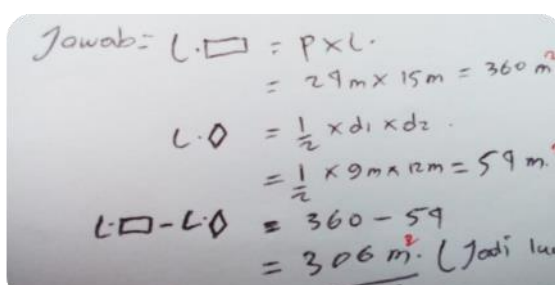 Jawab = L.▭ = P x L.
= 24 m x 15 m = 360 m²
L.◊ = 1/2 x d1 x d2.
= 1/2 x 9 m x 12 m = 54 m.
L.▭ - L.◊ = 360 - 54
= 306 m². (Jadi